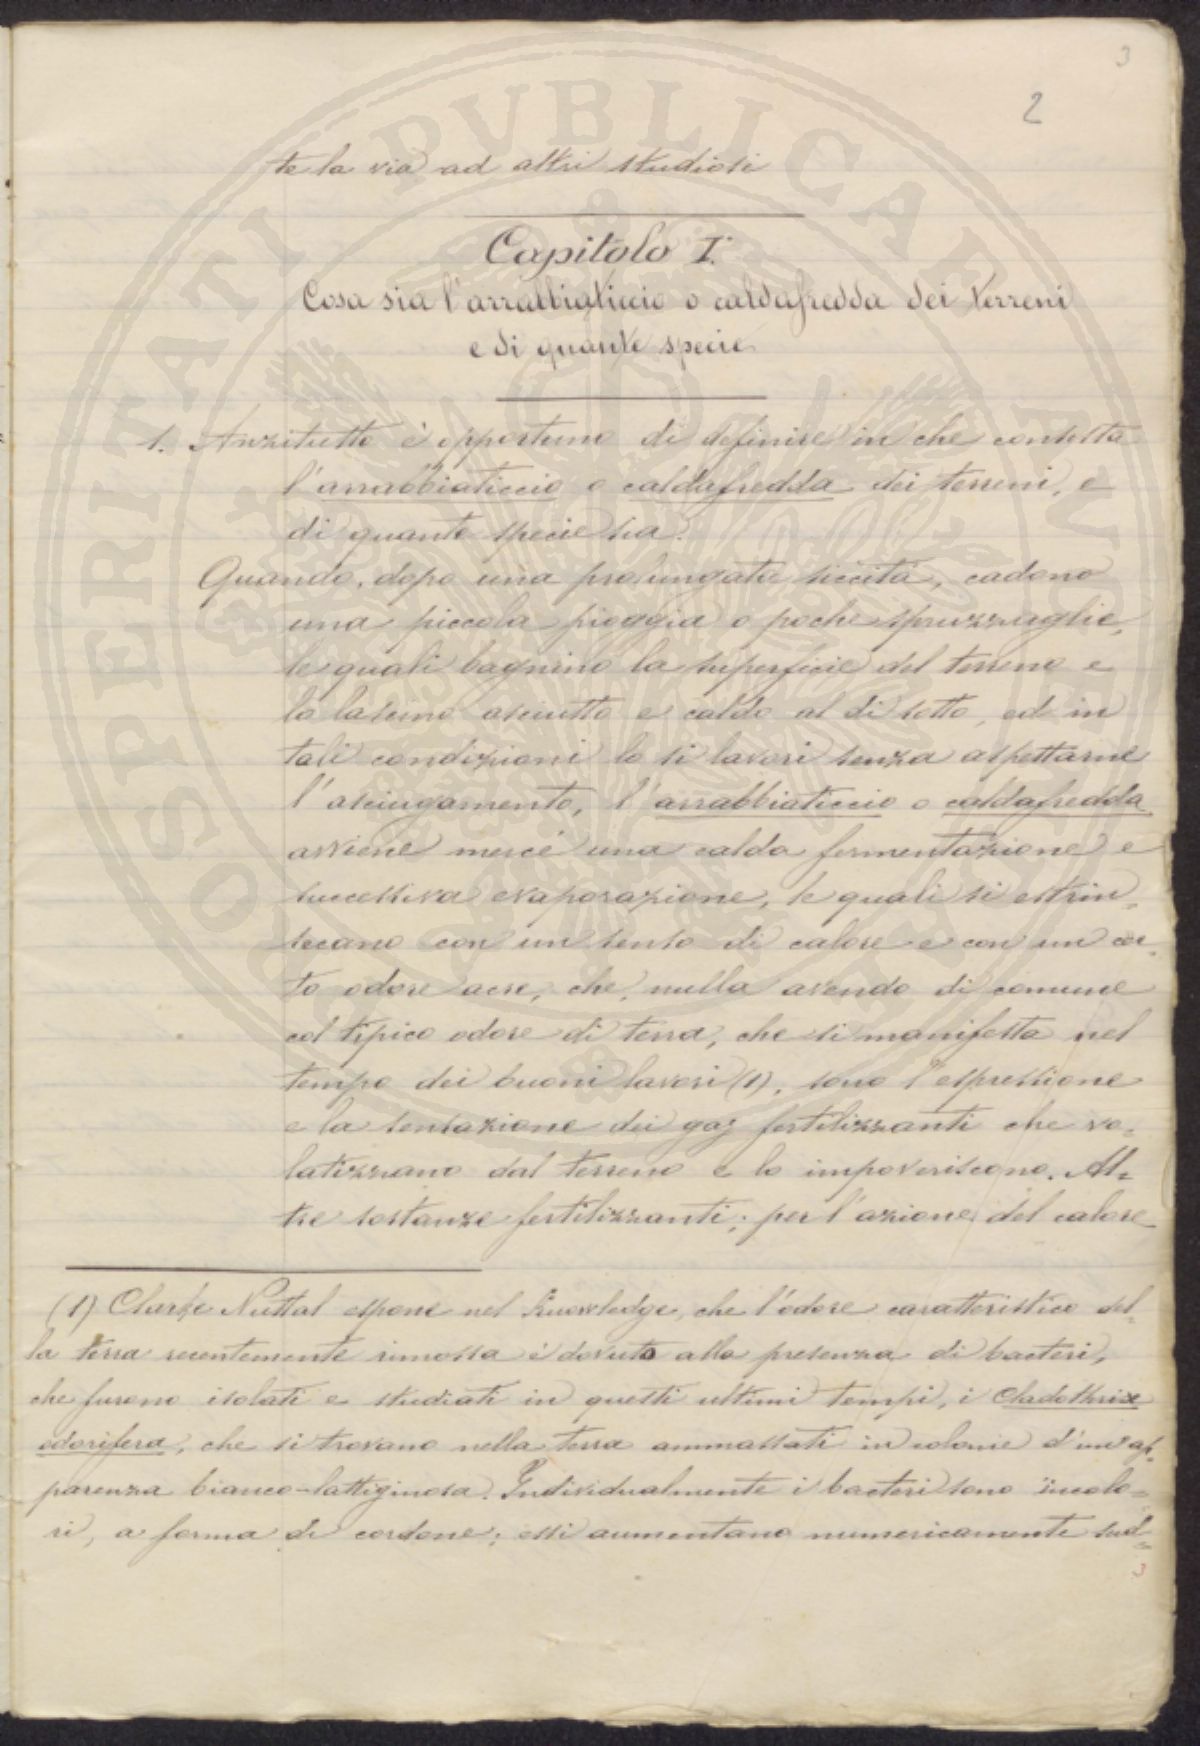 3
2
te la via ad altri studiosi
Capitolo I.
Cosa sia l'arrabbiaticcio o caldafredda dei terreni
e di quante specie
1. Anzitutto è opportuno di definire in che consista
l'arrabbiaticcio o caldafredda dei terreni, e
di quante specie sia.
Quando, dopo una prolungata siccità, cadono
una piccola pioggia o poche spruzzaglie,
le quali bagnino la superficie del terreno e
lo lascino asciutto e caldo al di sotto, ed in
tali condizioni lo si lavori senza aspettarne
l'asciugamento, l'arrabbiaticcio o caldafredda
avviene mercé una calda fermentazione e
successiva evaporazione, le quali si estrin=
secano con un senso di calore e con un cer=
to odore acre, che, nulla avendo di comune
col tipico odore di terra, che si manifesta nel
tempo dei buoni lavori (1), sono l'espressione
e la sensazione dei gaz fertilizzanti che vo=
latizzano dal terreno e lo impoveriscono. Al=
tre sostanze fertilizzanti, per l'azione del calore
(1) Clarke Nuttal espone nel Knowledge, che l'odore caratteristico del=
la terra recentemente rimossa è dovuto alla presenza di bacteri,
che furono isolati e studiati in questi ultimi tempi, i Cladothrix
odorifera, che si trovano nella terra ammassati in colonie d'un'ap=
parenza bianco-lattiginosa. Individualmente i bacteri sono incolo=
ri, a forma di cordone; essi aumentano numericamente sud=
3
SOSPERITATI PVBLICAE AVGENDAE